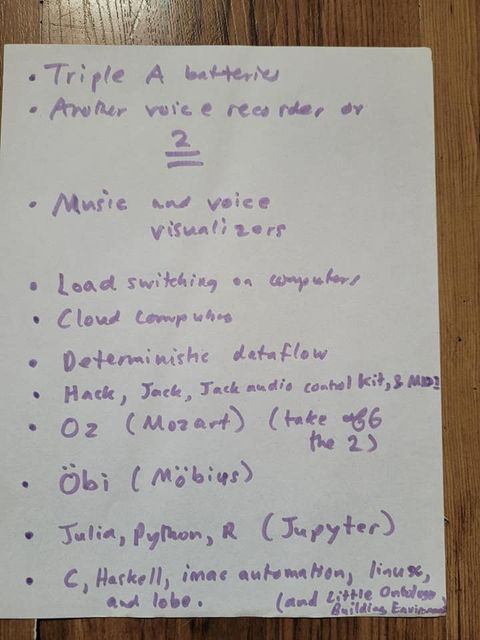 • Triple A batteries
• Another voice recorder or
2
• Music and voice
visualizors
• Load switching on computers
• Cloud computing
• Deterministic dataflow
• Hack, Jack, Jack audio control kit, & MIDI
• Oz (Mozart) (take off
the 2)
• Öbi (Möbius)
• Julia, Python, R (Jupyter)
• C, Haskell, imac automation, linux,
and lobe. (and Little Ontology
Building Environment